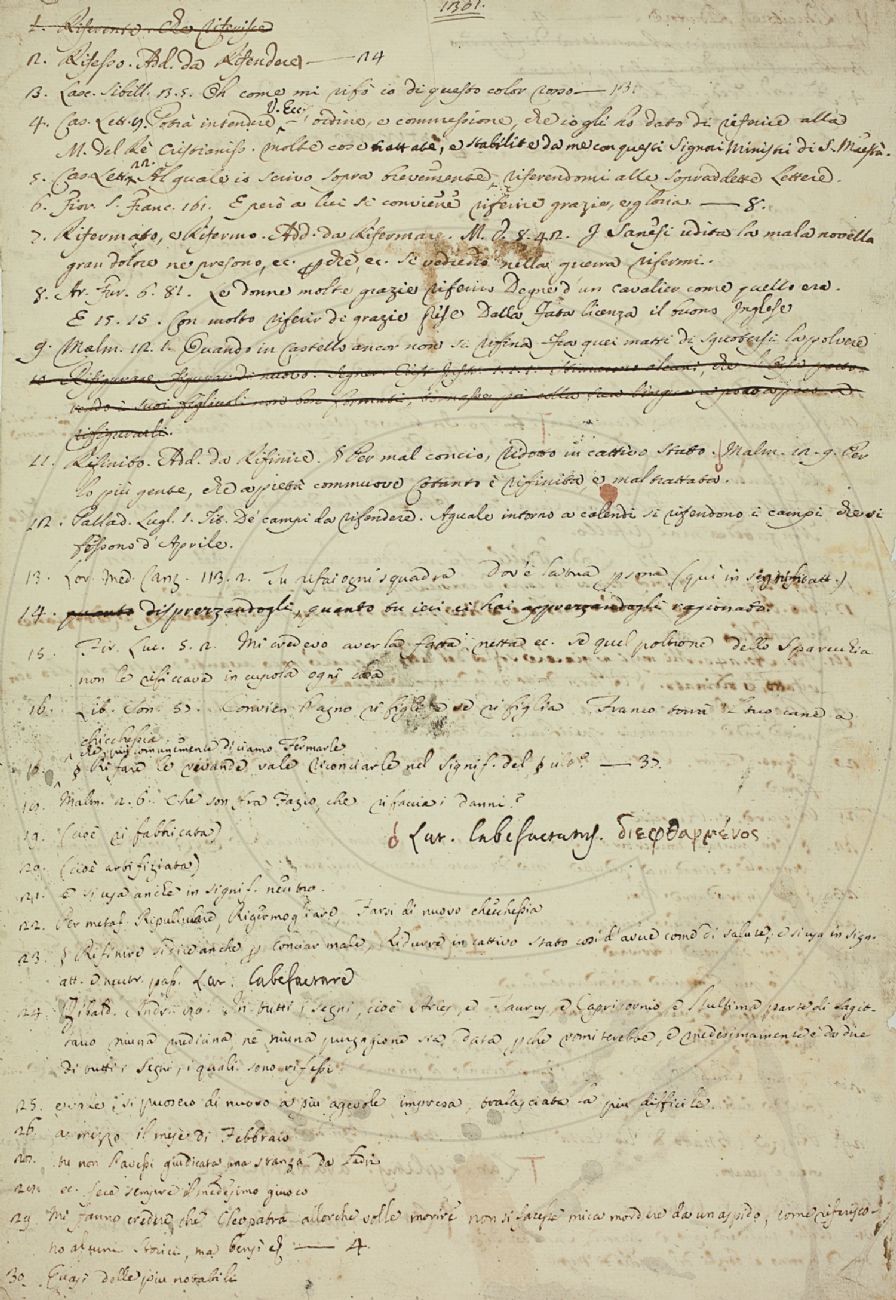 1361.
1. Riferente. Che riferisce
2. Rifesso. Add. da Rifendere — 24
3. Lasc. Sibill. 3. 5. Oh come mi rifò io di questo color rosso — 13.
V. Ecc.
4. Cas. Lett. 9. Potrà intendere ordine, e commessione, che io gli ho dato di riferire alla
M. del Re Cristianiss. molte cose trattate, e stabilite da me con questi Signori Ministri di S. Maestà.
5. Cas. Lett. 22. Al quale io scrivo sopra brevemente riferendomi alle sopraddette Lettere.
6. Fior. S. Franc. 161. E però a lui si conviene riferire grazie, e gloria — 8.
7. Rifermato, e Rifermo. Add. da Rifermare. M. V. 8. 42. I Sanesi udita la mala novella
gran dolore ne presono, ec. perchè, ec. si vedieno nella guerra rifermi.
8. Ar. Fur. 6. 81. Le donne molte grazie riferir Degne d'un cavalier come quello era.
E 15. 15. Con molto riferir di grazie prese Dalla Fata licenza il buono Inglese
9. Malm. 12. 1. Quando in Castello ancor non si rifina Fra quei matti di scuotersi la polvere
10. Rifigurare. Figurar di nuovo.
suoi figliuoli non ben formati,
rifigurarli.
11. Rifinito. Add. da Rifinire. § Per mal concio, ridotto in cattivo stato. Malm. 12. 9. Per
lo più gente, che a pietà commuove Cotanto è rifinita e maltrattata.
12. Pallad. Lugl. 1. Tit. De' campi da rifendere. Aguale intorno a calendi si rifendono i campi che si
fessono d'Aprile.
13. Lor. Med. Canz. 113. 2. Tu rifai ogni squadra Dov'è la tua persona (qui in signific. att.)
14. quanto disprezzandogli, quanto tu ieri ci hai apprezzandogli ragionato.
15. Fir. Luc. 5. 2. Mi credevo averla fatta netta ec. se quel poltrone dello Sparecchia
non le rificcava in cupola ogni cosa
16. Lib. Son. 57. Convien Ragno rifigli e se rifiglia Franco
chicchessia.
che più comunemente diciamo Fermarle
18. § Rifare le vivande vale riconciarle nel signif. del § ult. — 37.
19. Malm. 2. 6. Che son fra Fazio, che rifaccia i danni?
19. (cioè rifabbricata) Lat. labefactatus. διεφθαρμένος
20. (cioè artifiziata)
21. e si usa anche in signif. neutro.
22. Per metaf. Ripullulare, Rigermogliare, Farsi di nuovo chicchessia
23. § Rifinire si dice anche per Conciar male, Ridurre in cattivo stato così d'avere come di salute; e si usa in sign.
att. e neutr. pass. Lat. labefactare
24. Zibald. Andr. 120. In tutti i segni, cioè Aries, e Taurus, e Capricornio, e l'ultima parte di Sagit-
tario niuna medicina nè niuna purgagione sia data perchè vomiterebbe, e medesimamente è da dire
di tutti i Segni, i quali sono rifessi
25. ovvero si puosero di nuovo a più agevole impresa, tralasciata la più difficile
26. a mezzo il mese di Febbraio
27. tu non l'avessi giudicata una stanza da Ladri
28. ec. fece sempre il medesimo giuoco
29. Mi fanno credere che Cleopatra allorchè volle morire non si facesse mica mordere da un aspido, come riferisco-
no alcuni Storici, ma bensì ec. — 4.
30. Quasi delle più notabili